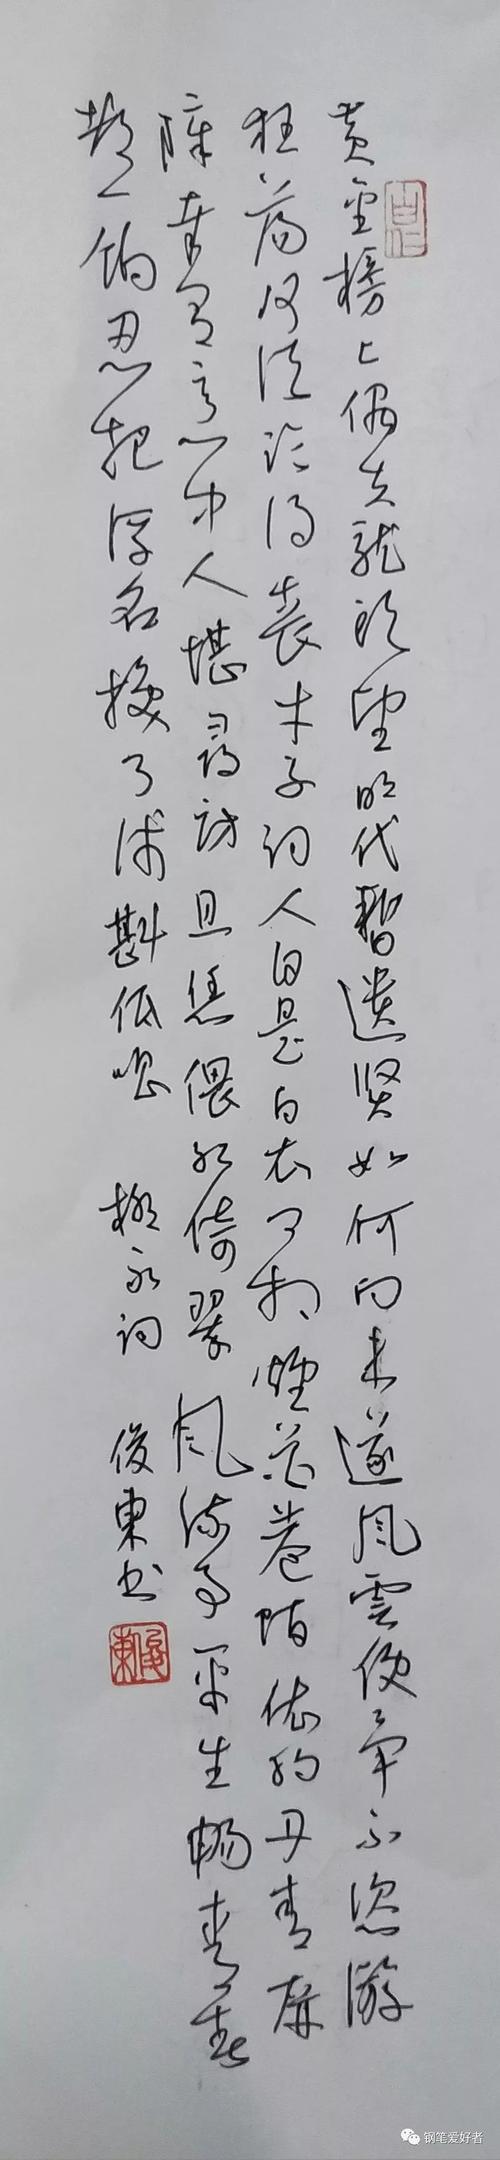 黄金榜上偶失龍头望明代暫遗贤如何向未遂风雲便争不恣游
狂荡何须论得丧才子词人自是白衣卿相烟花巷陌依约丹青屏
障幸有意中人堪寻访且恁偎红倚翠风流事平生畅青春
都一饷忍把浮名换了浅斟低唱 柳永词 俊東书
俊東
钢笔爱好者